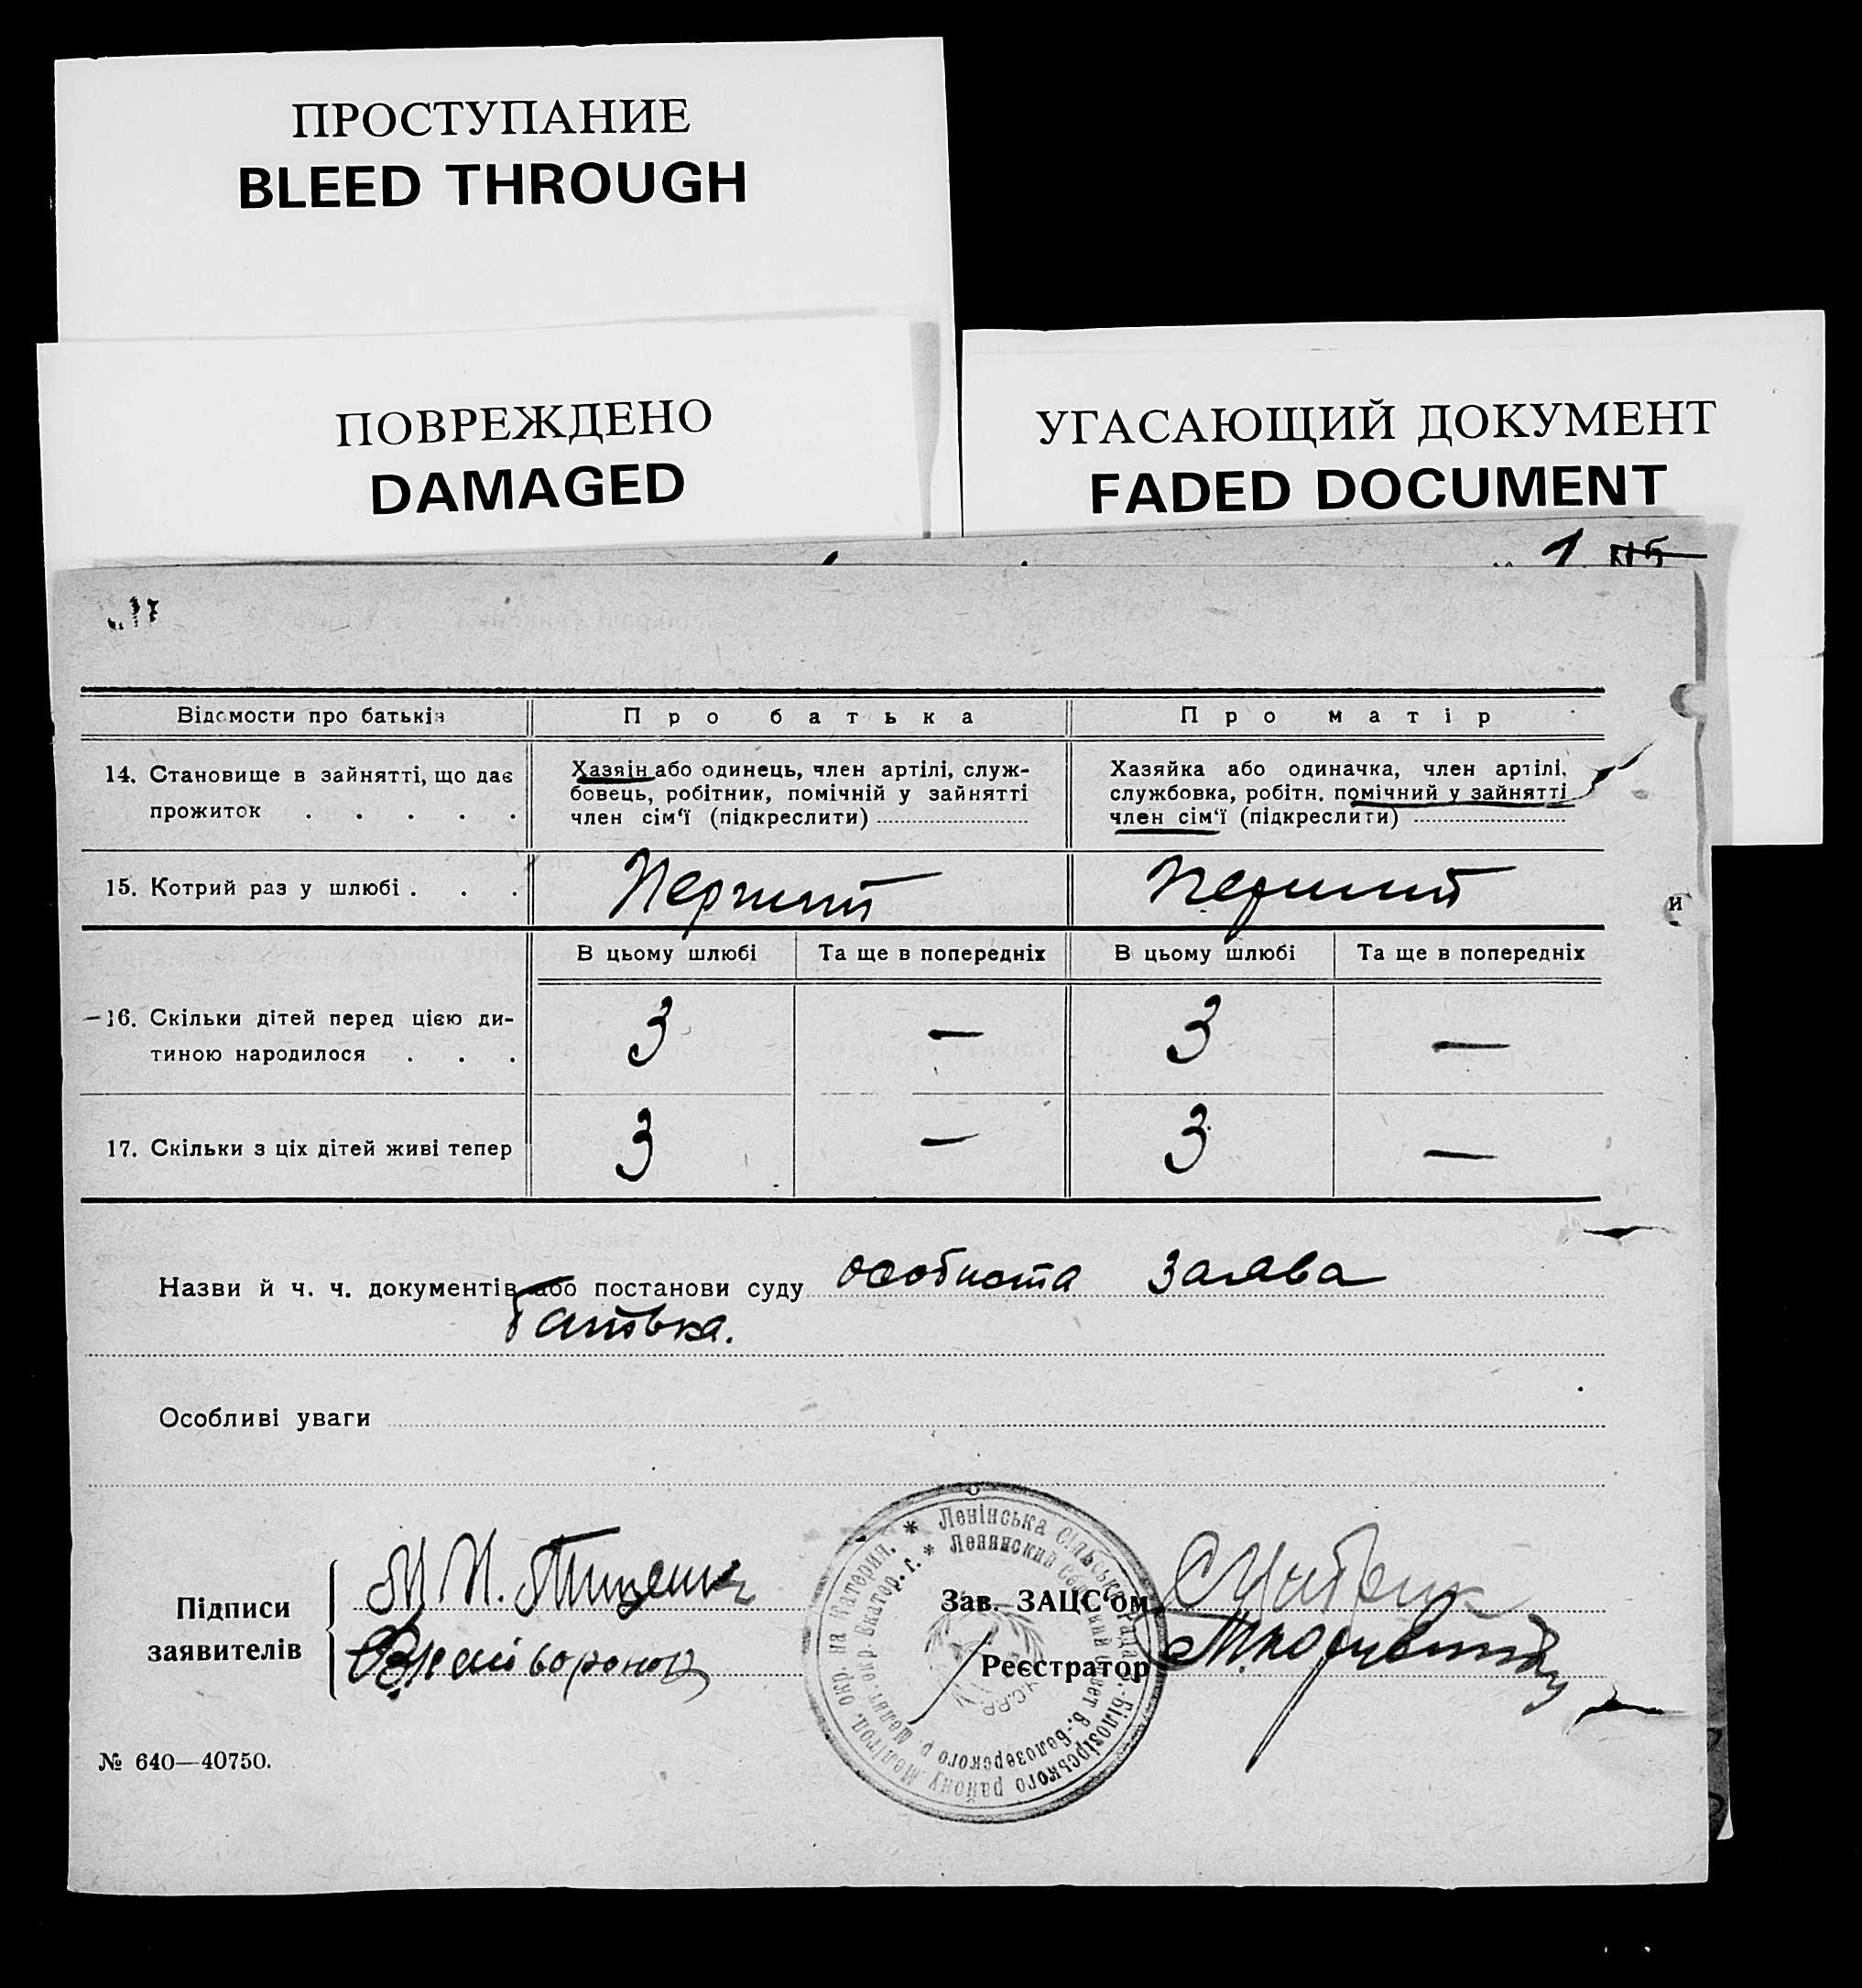 ПРОСТУПАНИЕ
BLEED THROUGH
ПОВРЕЖДЕНО
DAMAGED
УГАСАЮЩИЙ ДОКУМЕНТ
FADED DOCUMENT
1 №5
Відомости про батьків
Про батька
Про матір
14. Становище в зайнятті, що дає
прожиток . . . . .
Хазяін або одинець, член артілі, служ-
бовець, робітник, помічній у зайнятті
член сім‘ї (підкреслити)
Хазяйка або одиначка, член артілі,
службовка, робітн. помічний у зайнятті
член сім‘ї (підкреслити)
15. Котрий раз у шлюбі . . .
Перший
перший
и
В цьому шлюбі
Та ще в попередніх
В цьому шлюбі
Та ще в попередніх
16. Скільки дітей перед цією ди-
тиною народилося . . .
3
—
3
—
17. Скільки з ціх дітей живі тепер
3
—
3
—
Назви й ч. ч. документів або постанови суду особиста заява
батька.
Особливі уваги
Підписи
заявителів
М. П. Тищенко
Зав. ЗАЦС‘ом
Реєстратор
* Ленінська сільська рада В.-Білозірського району Мелітоп. окр. на Катерин.
* Ленинский Сельский Совет В.-Белозерского р. Мелит. окр. Екатер. г.
№ 640—40750.